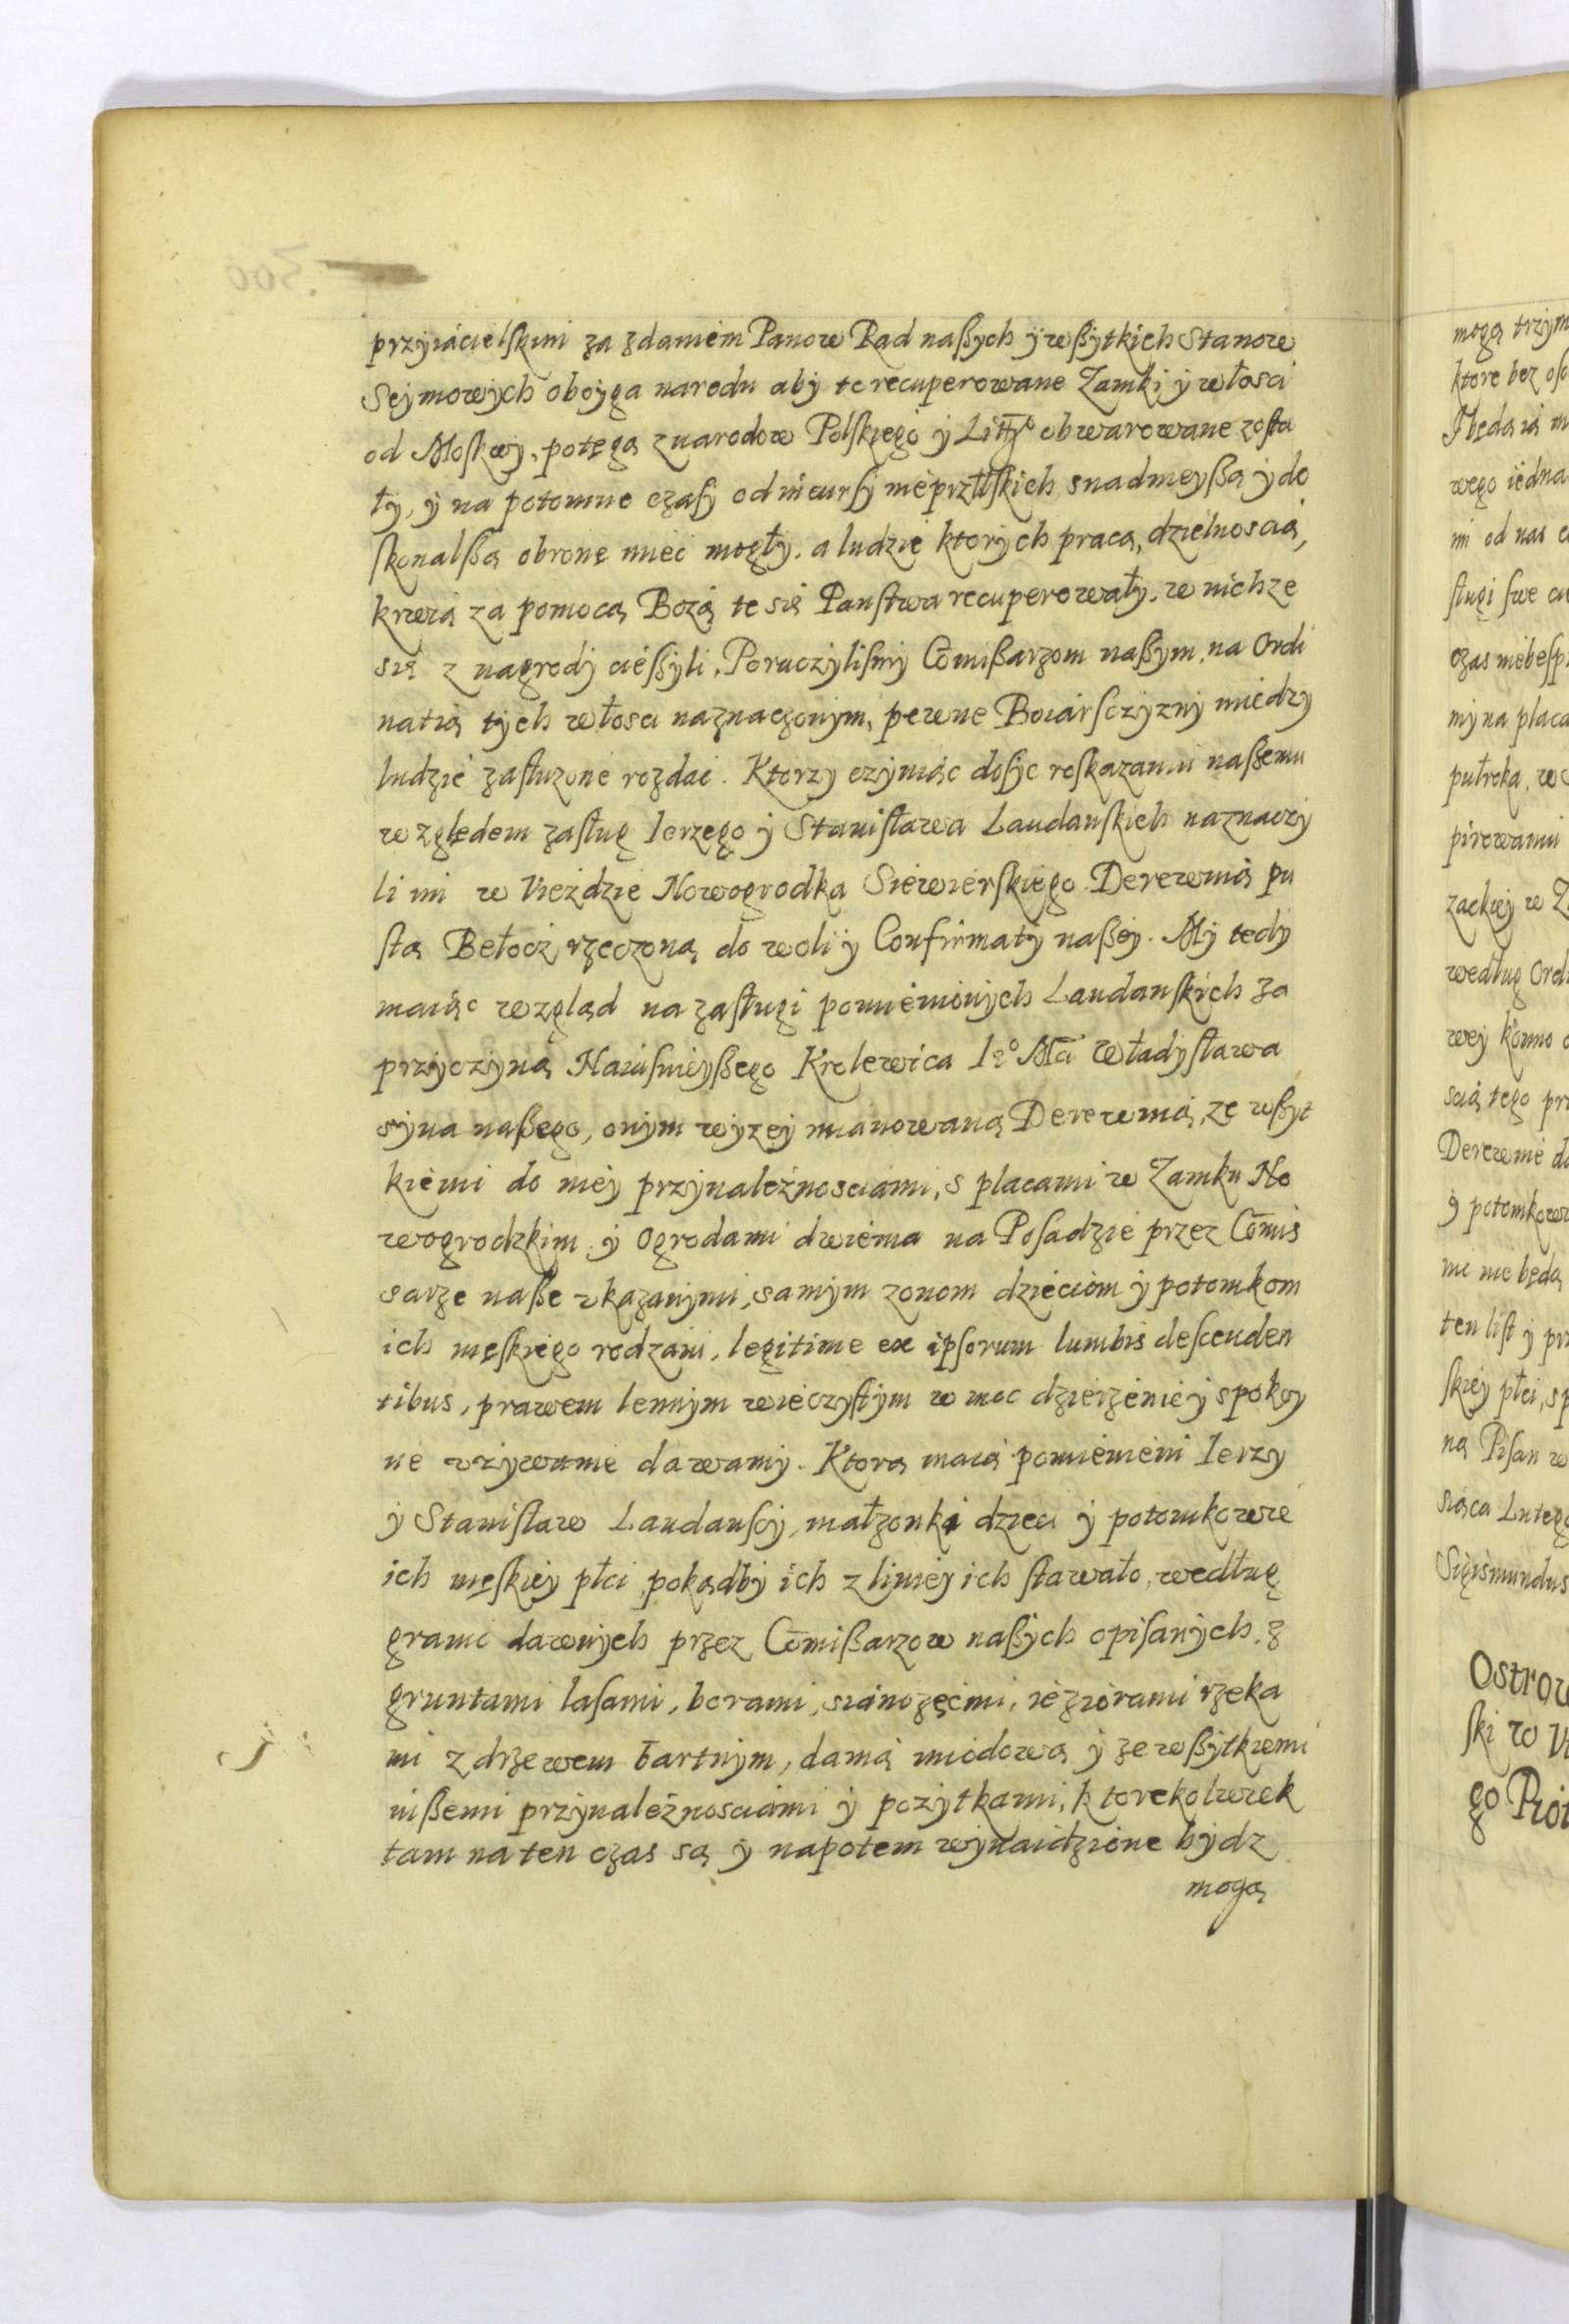 przyiacielskimi za zdaniem Panow Rad naßych ÿ wßÿtkich Stanow
Seymowÿch oboÿga narodu abÿ te recuperowane Zamki ÿ włosci
od Moskwÿ, potęgą z narodow Polskiego ÿ Litt° obwarowane zosta
łÿ, ÿ na potomne czasÿ od incursÿ nieprzłłskich snadnieyßą ÿ do
skonalßą obronę mieć mogłÿ. a ludzie ktorÿch pracą, dzielnoscią,
krwią za pomocą Bożą te się Panstwa recuperowałÿ, w nich ze
się z nagrodÿ cießÿli, Poruczÿlismÿ Com̃ißarzom naßÿm, na Ordi
natią tÿch włosci naznaczonÿm, pewne Boiarsczÿznÿ miedzy
ludzie zasłużone rozdać. Ktorzy czÿniąc dosÿc roskazaniu naßemu
względem zasług Ierzego ÿ Stanisława Laudanskich naznaczÿ
li im w Vieździe Nowogrodka Siewierskiego Derewnią pu
stą Bełocż rzeczoną do woli ÿ Confirmatÿ naßeÿ. Mÿ tedÿ
maiąc wzgląd na zasługi pomienionÿch Laudanskich za
przÿczÿną Naiasnieÿßego Krolewica I° Mci Władÿsława
sÿna naßego, onÿm wÿzeÿ mianowaną Derewnią, ze wßÿt
kiemi do nieÿ przÿnależnosciami, s placami w Zamku No
wogrodzkim ÿ ogrodami dwiema na Posadzie przez Com̃is
sarze naße vkazanÿmi, samÿm zonom dzieciom ÿ potomkom
ich męskiego rodzaiu, legitime ex ipsorum lumbis descenden
tibus, prawem lennÿm wieczÿstÿm w moc dzierżenie ÿ spokoÿ
ne vzÿwanie dawamÿ. Ktorą maią pomienieni Ierzy
ÿ Stanisław Laudanscÿ, małzonki dzieci ÿ potomkowie
ich męskieÿ płci, pokądbÿ ich z linieÿ ich stawało, według
granic dawnÿch przez Com̃ißarzow naßÿch opisanÿch, z
gruntami lasami, borami, sianożęćmi, ieziorami rzeka
mi z drzewem bartnÿm, danią miodową ÿ ze wßÿtkiemi
inßemi przÿnależnosciami ÿ pożÿtkami, ktorekolwiek
tam na ten czas są ÿ napotem wÿnaidzione bÿdz
mogą
mogą trzÿm
ktore bez os
wego iedna
mi od nas
sługi swe
czas niebesp
mÿ na placa
pułroka, w
pirowaniu
zackieÿ w Z
według Ordi
weÿ konno
scią tego pr
Derewnie
ÿ potomkow
mi nie będą
ten list ÿ
skieÿ płci, sp
ną Pisan w
siąca Lutego
Sigismundus
Ostrow
ski w
go